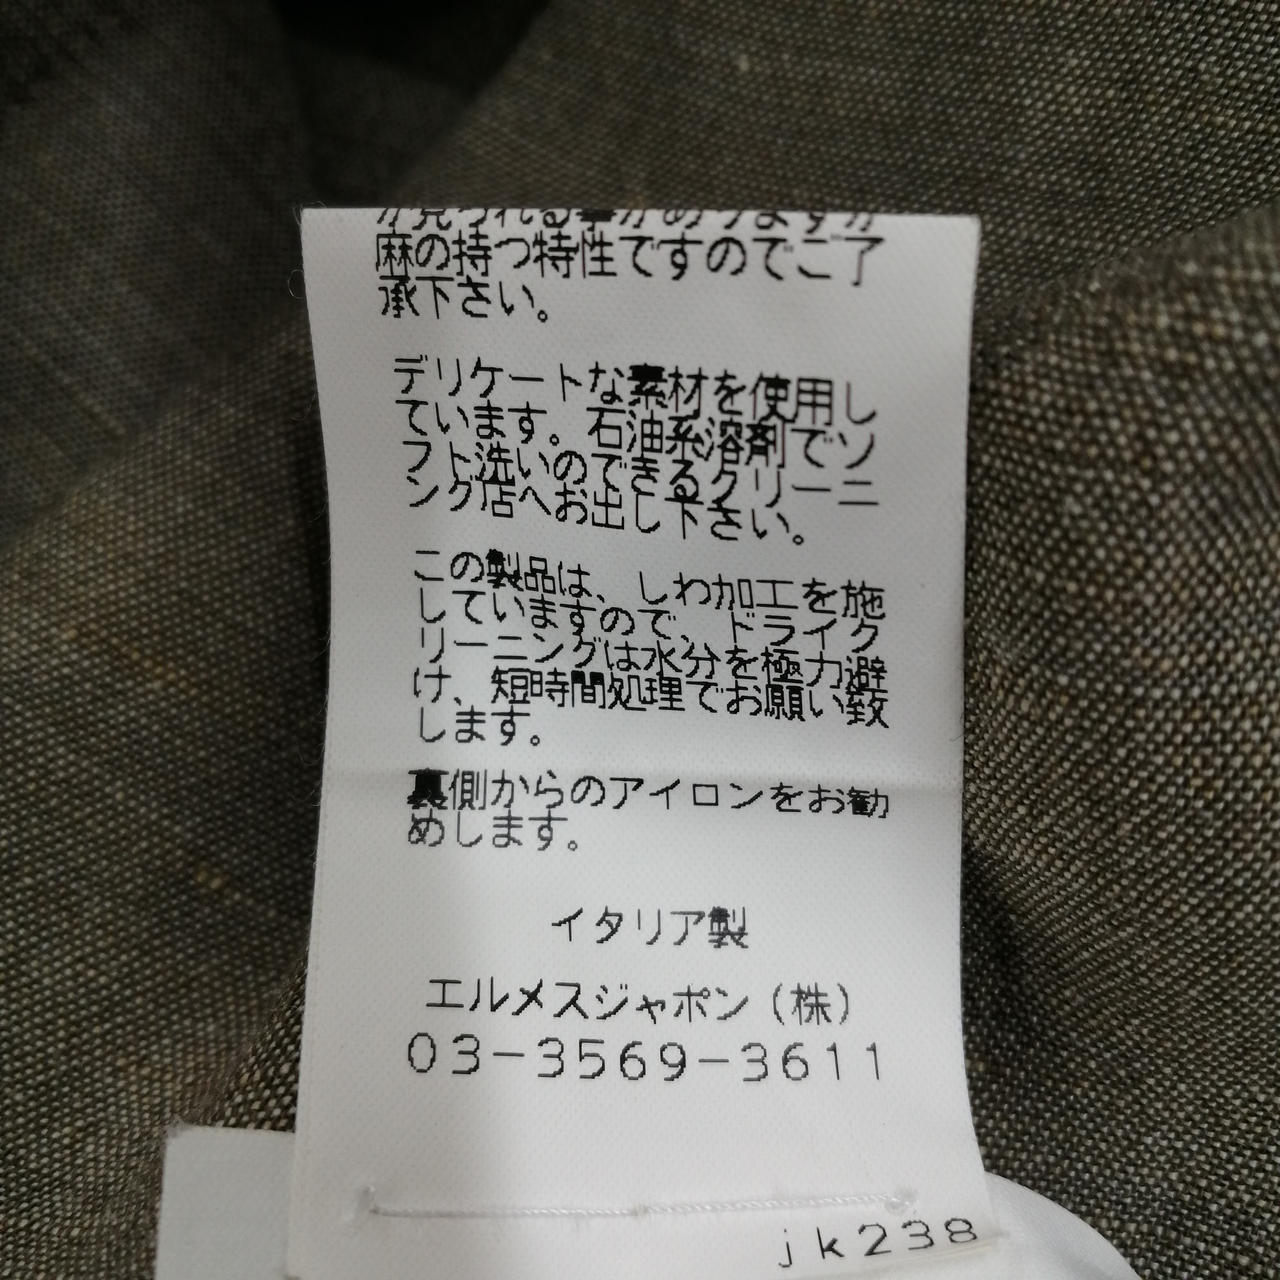 が見られる事がありますが
麻の持つ特性ですのでご了
承下さい。
デリケートな素材を使用し
ています。石油系溶剤でソ
フト洗いのできるクリーニ
ング店へお出し下さい。
この製品は、しわ加工を施
していますので、ドライク
リーニングは水分を極力避
け、短時間処理でお願い致
します。
裏側からのアイロンをお勧
めします。
イタリア製
エルメスジャポン(株)
03-3569-3611
jk238